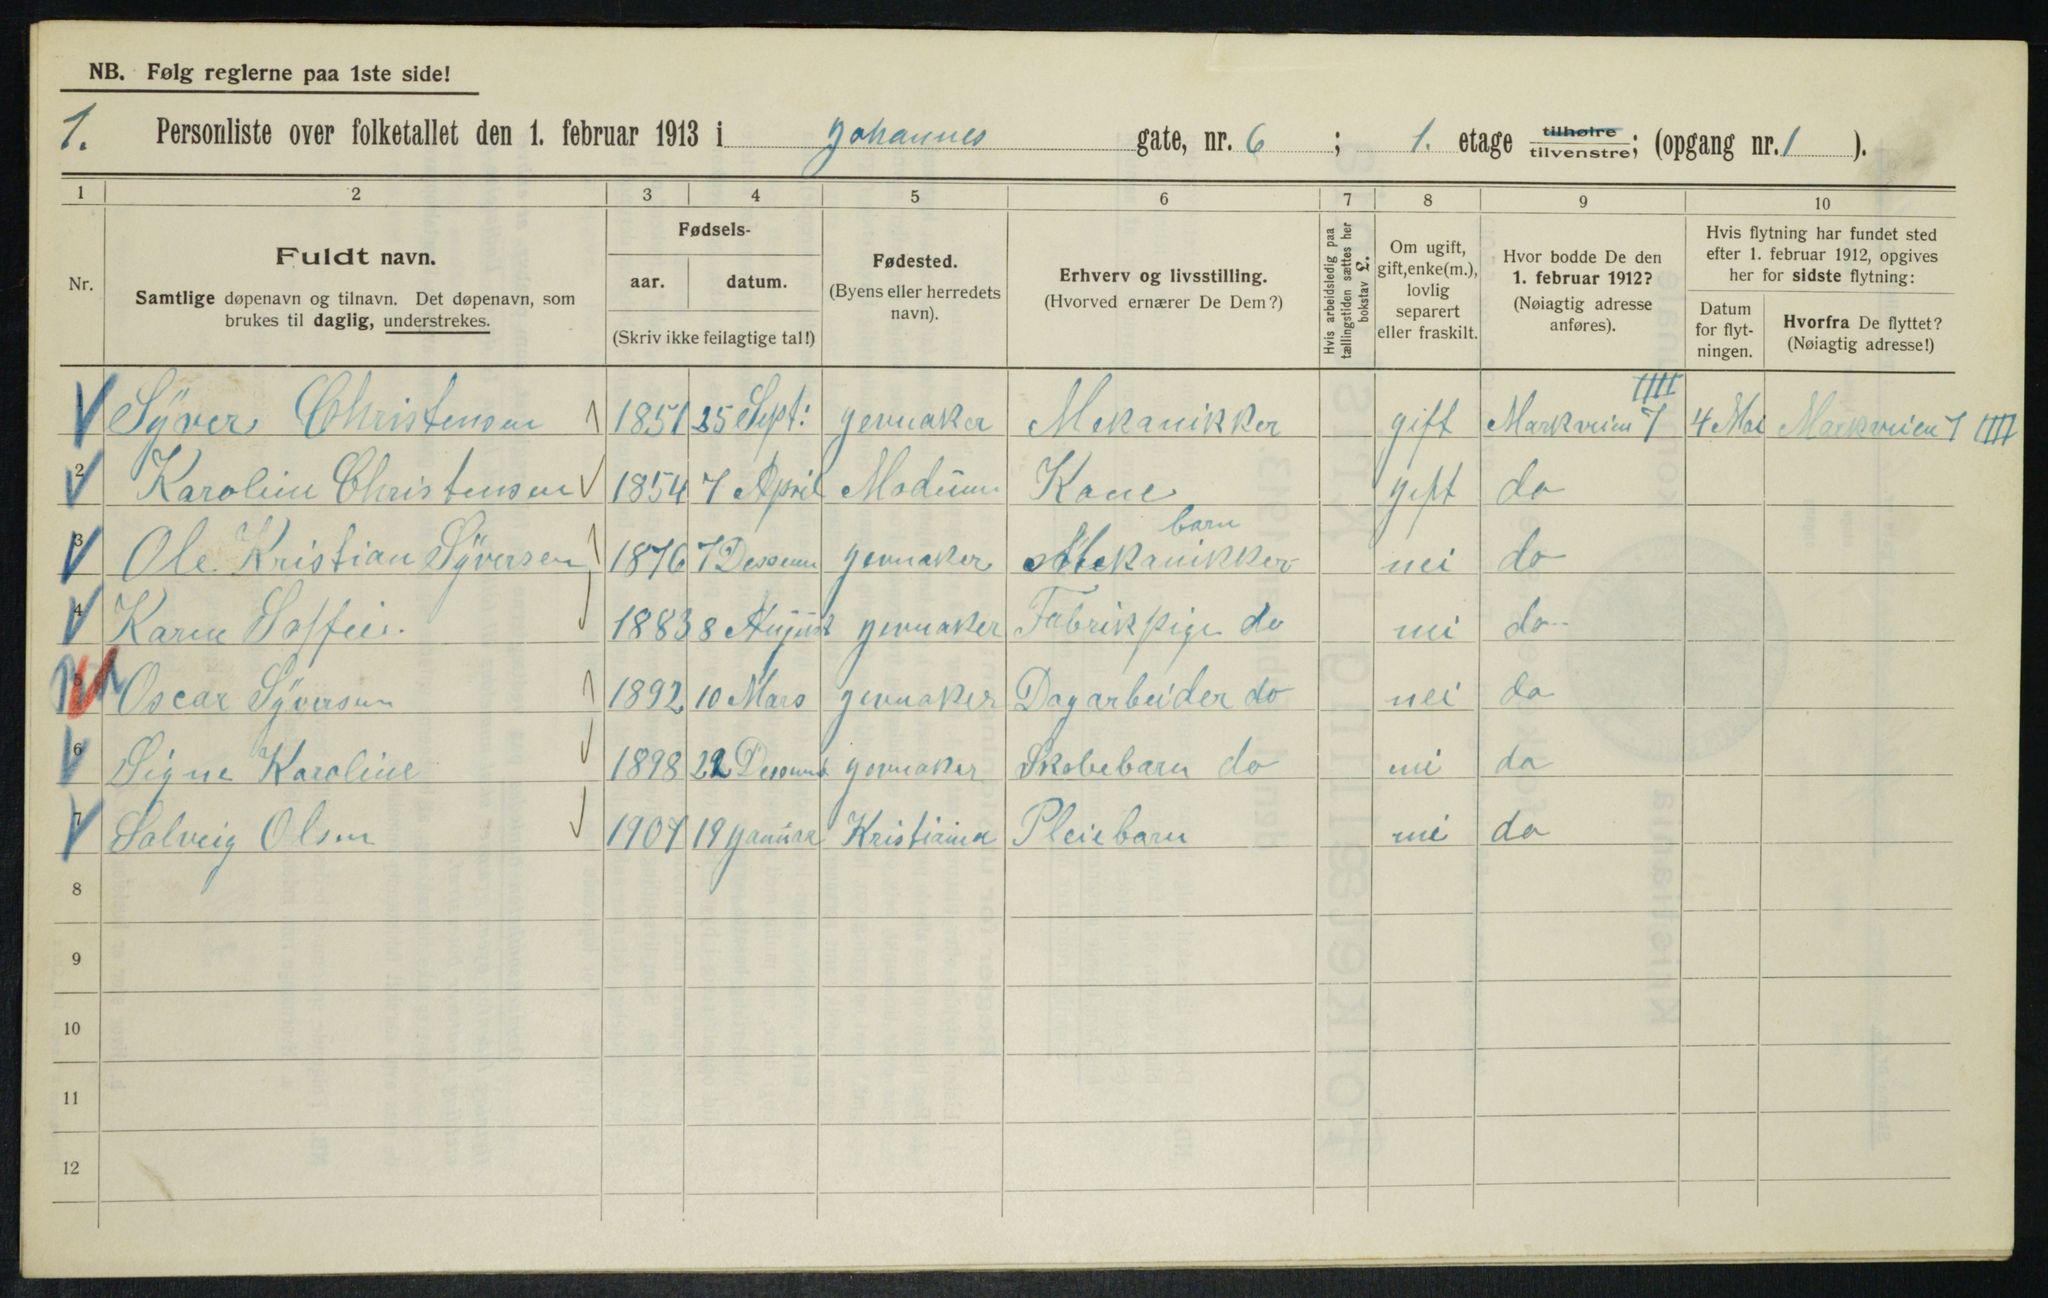 NB. Følg reglerne paa 1ste side!
1. Personliste over folketallet den 1. februar 1913 i Johannes gate, nr. 6 ; 1. etage tilhøire tilvenstre; (opgang nr. 1 ).
1 2 3 4 5 6 7 8 9 10
Nr.
Fuldt navn.
Samtlige døpenavn og tilnavn. Det døpenavn, som
brukes til daglig, understrekes.
Fødsels-
aar. datum.
(Skriv ikke feilagtige tal!)
Fødested.
(Byens eller herredets
navn).
Erhverv og livsstilling.
(Hvorved ernærer De Dem?)
Hvis arbeidsledig paa
tællingstiden sættes her
bokstav L.
Om ugift,
gift, enke(m.),
lovlig
separert
eller fraskilt.
Hvor bodde De den
1. februar 1912?
(Nøiagtig adresse
anføres).
Hvis flytning har fundet sted
efter 1. februar 1912, opgives
her for sidste flytning:
Datum
for flyt-
ningen.
Hvorfra De flyttet?
(Nøiagtig adresse!)
1 Syver Christensen 1851 25 Sept: Jevnaker Mekanikker gift Markveien 7 4 Mai Markveien 7
2 Karoline Christensen 1854 7 April Modum Kone gift do
barn
3 Ole Kristian Syversen 1876 7 Dessem Jevnaker Mekanikker nei do
4 Karen Soffie. 1883 8 August Jevnaker Fabrikpige do nei do
5 Oscar Syversen 1892 10 Mars Jevnaker Dagarbeider do nei do
6 Signe Karoline 1898 22 Jevnaker Skolebarn do nei do
7 Solveig Olsen 1907 19 Januar Kristiania Pleiebarn nei do
8
9
10
11
12